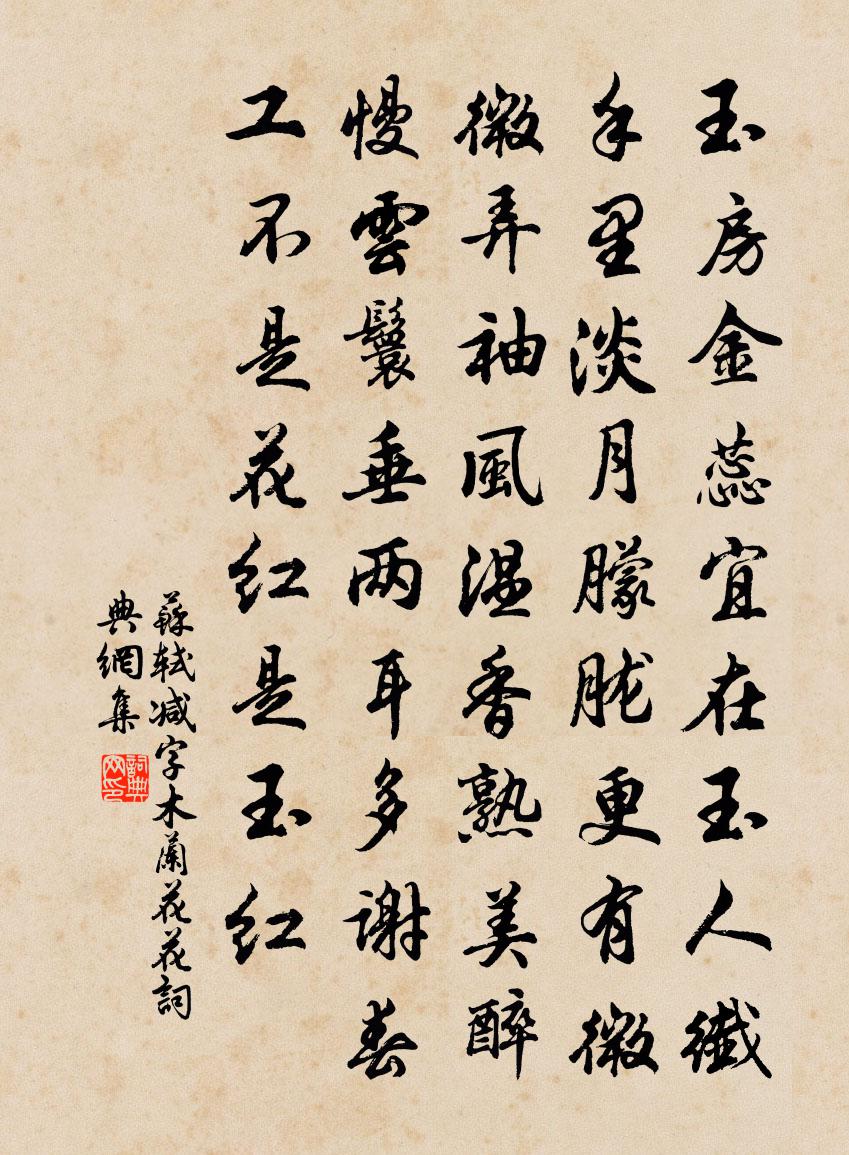 玉房金蕊宜在玉人纖
手里淡月朦朧更有微
微弄袖風温香熟美醉
慢雲鬟垂两耳多謝春
工不是花红是玉红
蘇軾减字木蘭花花詞
典網集
詞典网印